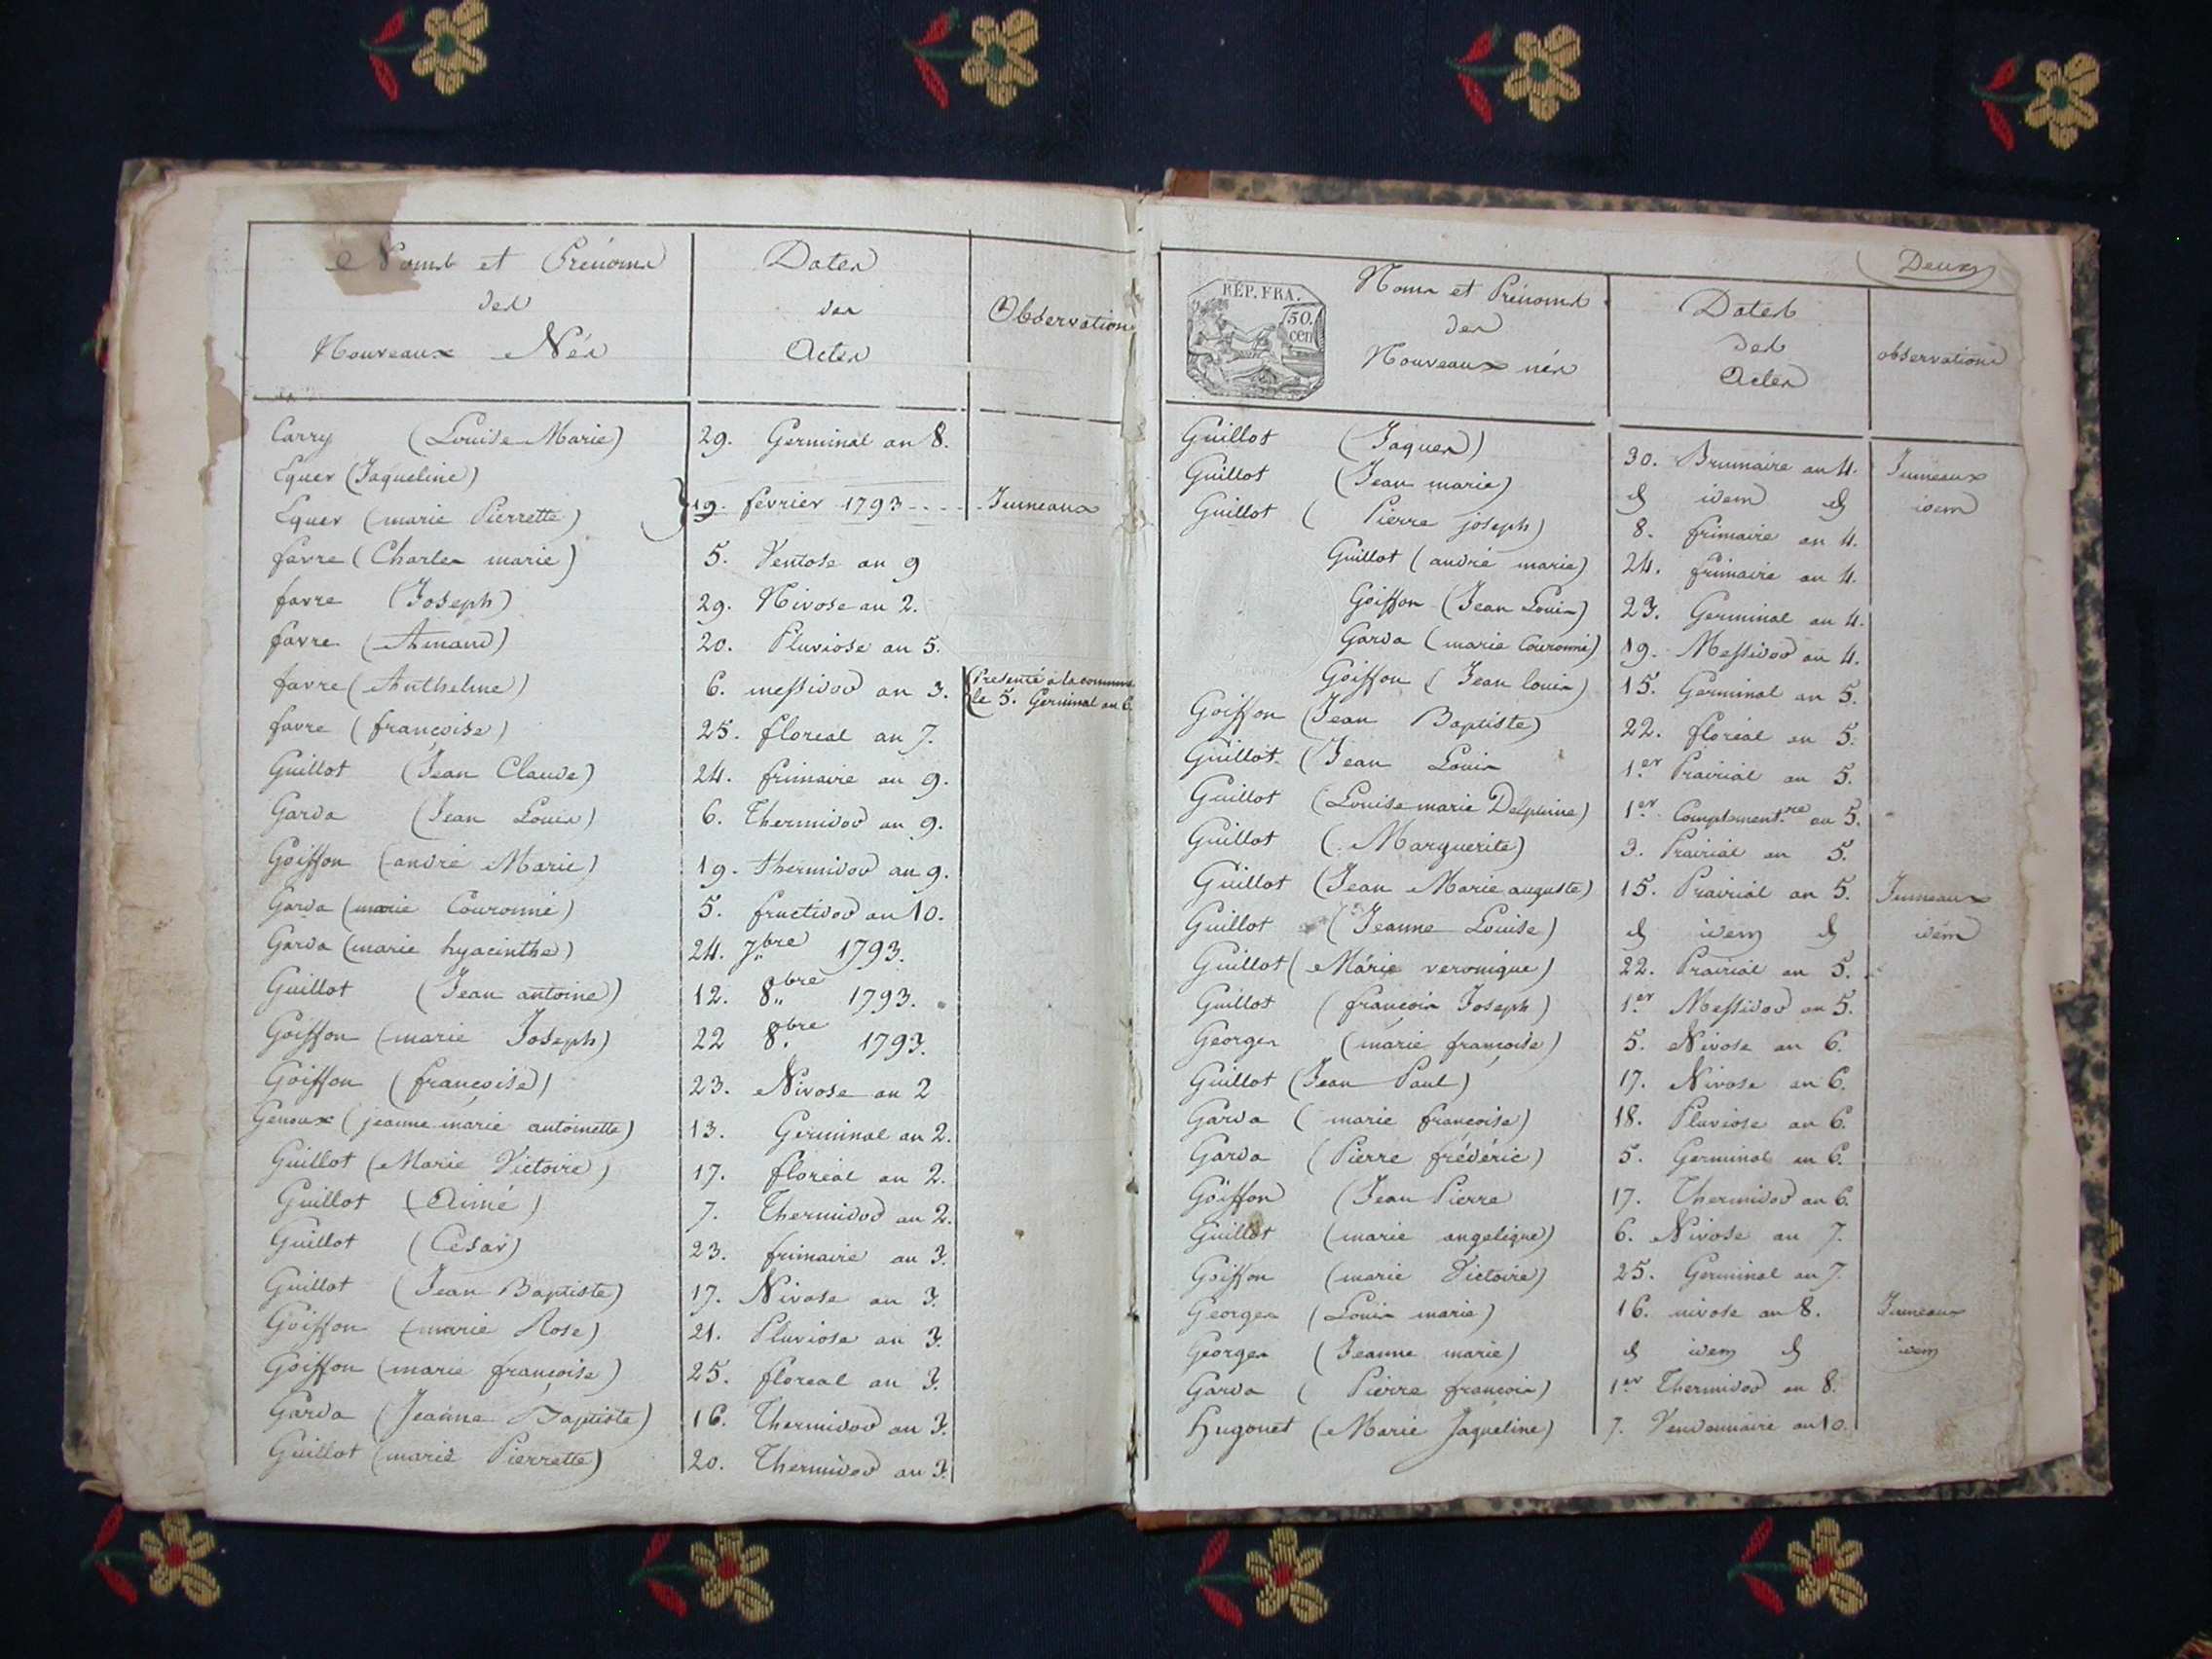 Noms et Prénoms
des
Nouveaux Nés
Dates
des
Actes
Observation
Carry (Louise Marie) 29. Germinal an 8.
Equer (Jaqueline)
Equer (marie Pierrette) 19. fevrier 1793 .... Jumeaux
favre (Charles marie) 5. Ventose an 9
favre (Joseph) 29. Nivose an 2.
favre (Amand) 20. Pluviose an 5.
favre (Anthelme) 6. messidor an 3. (Presenté à la commune
le 5. Germinal an 6
favre (françoise) 25. floreal an 7.
Guillot (Jean Claude) 24. frimaire an 9.
Garda (Jean Louis) 6. Thermidor an 9.
Goiffon (andré Marie) 19. thermidor an 9.
Garda (marie Couronne) 5. fructidor an 10.
Garda (marie hyacinthe) 24. 7bre 1793.
Guillot (Jean antoine) 12. 8bre 1793.
Goiffon (marie Joseph) 22 8bre 1793.
Goiffon (françoise) 23. Nivose an 2
Genoux (jeanne marie antoinette) 13. Germinal an 2.
Guillot (Marie Victoire) 17. floréal an 2.
Guillot (Aimé) 7. Thermidor an 2.
Guillot (Cesar) 23. frimaire an 3.
Guillot (Jean Baptiste) 17. Nivose an 3.
Goiffon (marie Rose) 21. Pluviose an 3.
Goiffon (marie françoise) 25. floreal an 3.
Garda (Jeanne Baptiste) 16. Thermidor an 3.
Guillot (marie Pierrette) 20. Thermidor an 3.
(Deux)
RÉP. FRA.
50.
cen
Noms et Prénoms
des
Nouveaux nés
Dates
des
Actes
observations
Guillot (Jaques) 30. Brumaire an 4. Jumeaux
Guillot (Jean marie) & idem & idem
Guillot (Pierre joseph) 8. frimaire an 4.
Guillot (andré marie) 24. frimaire an 4.
Goiffon (Jean Louis) 23. Germinal an 4.
Garda (marie Couronne) 19. Messidor an 4.
Goiffon (Jean louis) 15. Germinal an 5.
Goiffon (Jean Baptiste) 22. floréal an 5.
Guillot (Jean Louis 1.er Prairial an 5.
Guillot (Louise marie Delphine) 1er Complement.re an 5.
Guillot (Marguerite) 3. Prairial an 5.
Guillot (Jean Marie auguste) 15. Prairial an 5. Jumeaux
Guillot (Jeanne Louise) & idem & idem
Guillot (Marie veronique) 22. Prairial an 5.
Guillot (francois Joseph) 1.er Messidor an 5.
Georges (marie françoise) 5. Nivose an 6.
Guillot (Jean Paul) 17. Nivose an 6.
Garda (marie françoise) 18. Pluviose an 6.
Garda (Pierre frédéric) 5. Germinal an 6.
Goiffon (Jean Pierre 17. Thermidor an 6.
Guillot (marie angelique) 6. Nivose an 7.
Goiffon (marie Victoire) 25. Germinal an 7.
Georges (Louis marie) 16. nivose an 8. Jumeaux
Georges (Jeanne marie) & idem & idem
Garda (Pierre françois) 1er Thermidor an 8.
Hugonet (Marie Jaqueline) 7. Vendemiaire an 10.